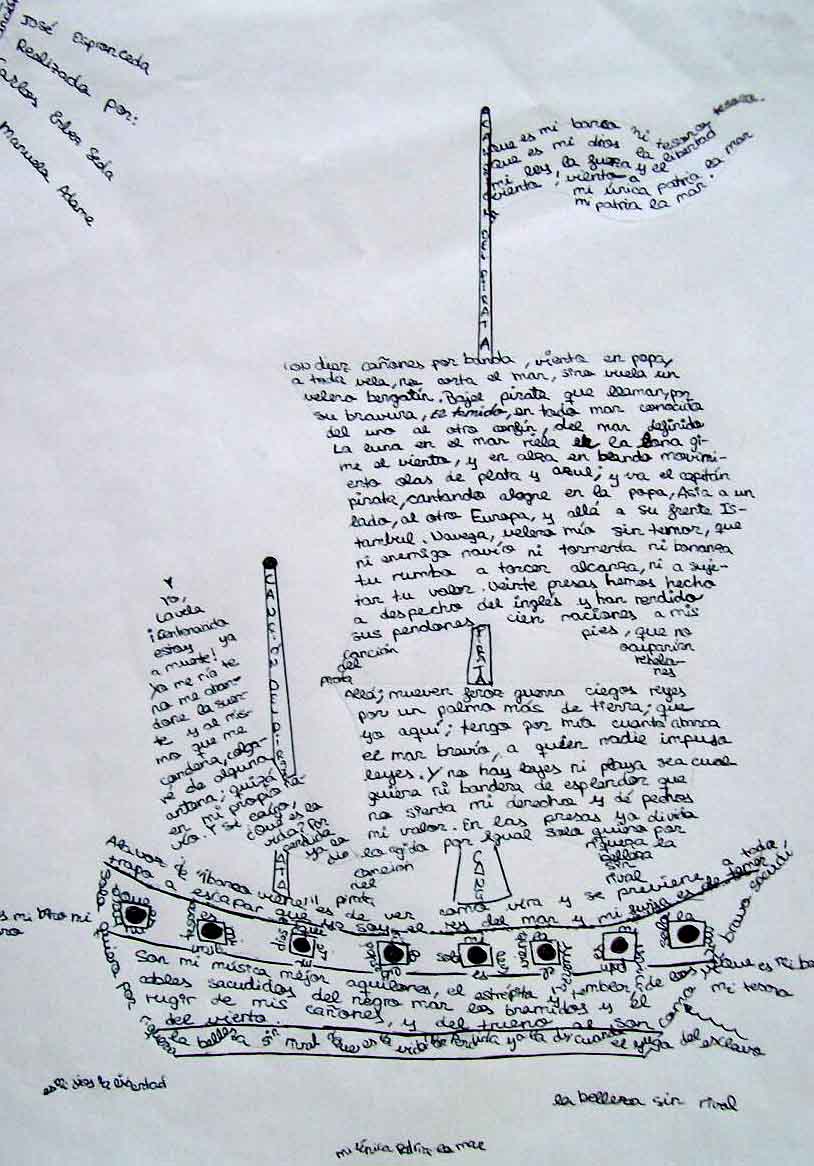 José Espronceda
Realizado por:
Carlos
Seda
Manuela Adame
que es mi barco mi tesoro,
que es mi dios la libertad
mi ley, la fuerza y el
viento, viento a
mi única patria la mar
mi patria la mar.
CANCIÓN DEL PIRATA
Con diez cañones por banda, viento en popa,
a toda vela, no corta el mar, sino vuela un
velero bergatín. Bajel pirata que llaman, por
su bravura, El temido, en todo mar conocida
del uno al otro confín, del mar definido
La luna en el mar riela en la lona gi-
me el viento, y en alza en blando movimi-
ento olas de plata y azul; y va el capitán
pirata, cantando alegre en la popa, Asia a un
lado, al otro Europa, y allá a su frente Is-
tambul. Navega, velero mío sin temor, que
ni enemigo navío ni tormenta ni bonanza
tu rumbo a torcer alcanza, ni a suje-
tar tu valor. Veinte presas hemos hecho
a despecho del inglés y han rendido
sus pendones cien naciones a mis
pies, que no
canción
del
pirata
PIRATA
Allá; mueven feroz guerra ciegos reyes
por un palmo más de tierra; que
yo aquí; tengo por mío cuanto abarca
el mar bravío, a quien nadie impuso
leyes. Y no hay leyes ni playa sea cual
quiera ni bandera de esplendor que
no sienta mi derecho y dé pechos
mi valor. En las presas yo divido
lo cogido por igual solo quiero por
riqueza la
belleza
sin
rival
canción
del
pirata
Y
yo,
la vela
¡Sentenciado
estoy ya
a muerte!
Yo me río te
no me aban-
done la suer-
te y al mis-
mo que me
condena, colga-
ré de alguna
antena; quizá
en mi propio na-
vío. Y si caigo,
¿Que es la
vida? Por
perdida
ya la
di
A la voz de ¡¡barco viene!!! es de ver como vira y se previene a todo
trapo a escapar que yo soy el rey del mar y mi furia es de temer
Son mi música mejor aquilones, el estrépito y temblor de los
cables sacudidos del negro mar los bramidos y el
rugir de mis cañones, y del trueno al son
del viento.
solo quiero por
riqueza la belleza sin rival que es la vida Por perdida ya la di cuando el yugo del esclavo
como
bravo sacudí
que es mi
mi tesoro
es mi dios la libertad
la belleza sin rival
mi única Patria la mar